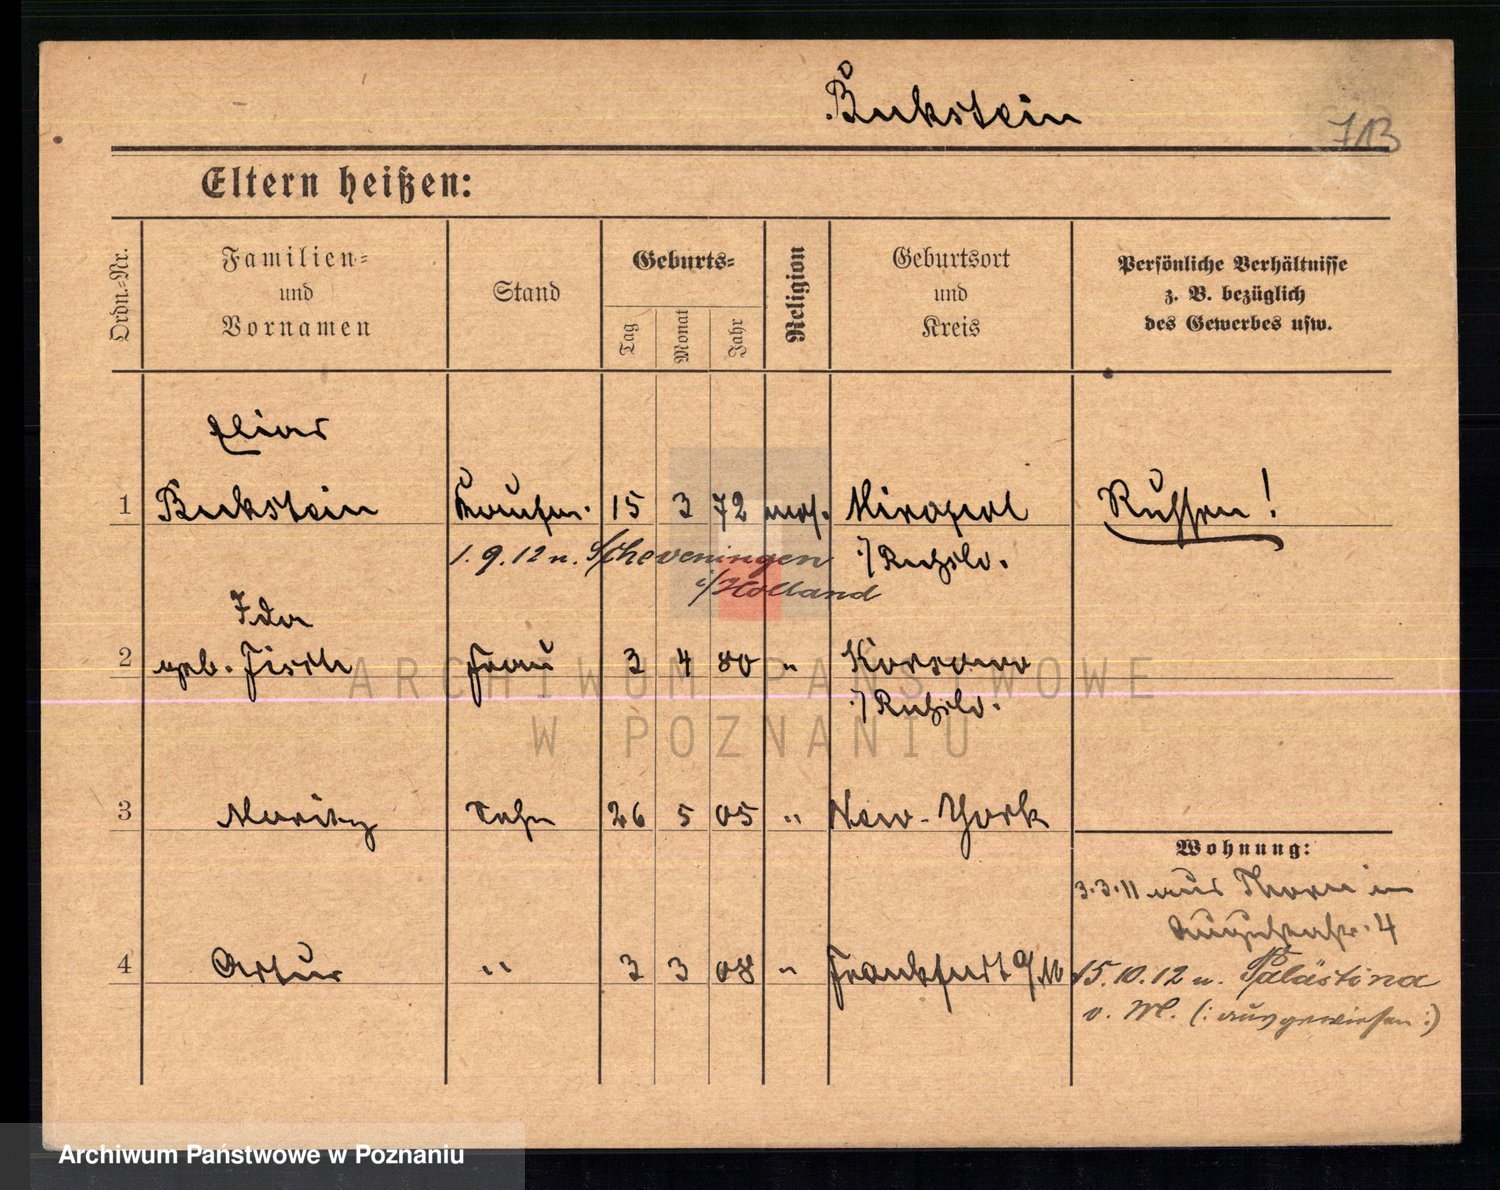 Bukstein
713
Eltern heißen:
Ordn.-Nr.
Familien-
und
Vornamen
Stand
Geburts-
Tag
Monat
Jahr
Religion
Geburtsort
und
Kreis
Persönliche Verhältnisse
z. B. bezüglich
des Gewerbes usw.
Elias
1 Bukstein Kaufm. 15 3 72 mos. Miropol Russen!
1.9.12 n. Scheveningen i/Rußld.
i/Holland
Ida
2 geb. Fisch Frau 3 4 80 "
i/Rußld.
3 Moritz Sohn 26 5 05 " New-York
Wohnung:
3.3.11 aus Thorn in
Augustastr. 4
4 Artur " 3 3 08 " Frankfurt a/M
15.10.12 n. Palästina
v. M. (: ausgewiesen :)
ARCHIWUM PAŃSTWOWE
W POZNANIU
Archiwum Państwowe w Poznaniu